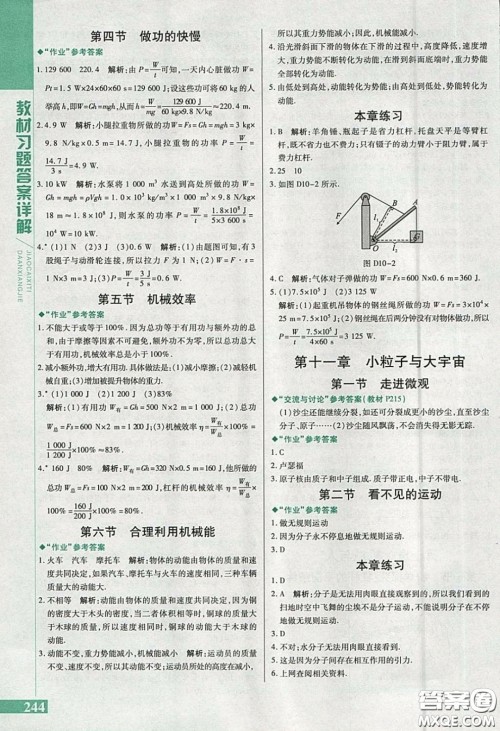 第四节 做功的快慢
◆“作业”参考答案
1. 129 600 220.4 解析:由P=W/t可知,一天内心脏做功W=
Pt=1.5 W×24×60×60 s=129 600 J;设这些功可将60 kg的人
举高h,则由W=Gh=mgh,h=W/mg=129 600 J/(60 kg×9.8 N/kg)≈220.4 m.
2. 4.9 W 解析:小腿拉重物所做的功W=Gh=mgh=3 kg×
9.8 N/kg×0.5 m=14.7 J,小腿拉重物的功率P=W/t=
14.7 J/3 s=4.9 W.
3. 10 kW 解析:水泵将1 000 m³水送到高处所做的功W=
Gh=mgh=ρVgh=1.0×10³ kg/m³×1 000 m³×9.8 N/kg×
18 m≈1.8×10⁸ J,则水泵的功率P=W/t=1.8×10⁸ J/(5×3 600 s)=
1×10⁴ W=10 kW.
4. *(1)1N (2)3 J (3)0.6 W 解析:(1)由题图可知,有3段
绳子与动滑轮连接,所以F=1 N;(2)W=F·s=
1 N×3 m=3 J;(3)P=W/t=3 J/5 s=0.6 W.
第五节 机械效率
◆“作业”参考答案
1. 不能大于或等于100%.因总功等于有用功与额外功的总
和,由于摩擦等因素不可避免,额外功不为零,所以总功总
大于有用功,机械效率总是小于100%.
2. 减小额外功,增大有用功.具体做法是:(1)减小摩擦;(2)减
小机械自重;(3)增加被提升物体的重力.
3. (1)1 000 J (2)1 200 J (3)83.3% 解析:(1)W有=Gh=
500 N×2 m=1 000 J;(2)W总=Fs=600 N×2 m=1 200 J;
(3)η=W有/W总×100%=1 000 J/1 200 J×100%≈83.3%.
4. *160 J 80% 解析:W有=Gh=320 N×0.5 m=160 J,他所做的
总功W总=Fs=200 N×1 m=200 J,杠杆的机械效率η=W有/W总×
100%=160 J/200 J×100%=80%.
第六节 合理利用机械能
◆“作业”参考答案
1. 火车 汽车 摩托车 解析:物体的动能由物体的质量和速
度共同决定,如果汽车、摩托车与火车速度相同,三种车辆
质量最大的动能大.
2. 不相等 解析:动能由物体的质量和速度共同决定,因为铜
的密度大于木头的密度,当二者体积相等时,铜球的质量大
于木球的质量,所以速度相等时,铜球的动能大于木球的动
能.
3. 动能不变,重力势能减小,机械能减小 解析:运动员的质量不
变、速度不变,所以其动能不变;运动员所处的高度在减小,
所以其重力势能减小;因此,机械能减小.
4. 沿光滑斜面下滑的物体在下滑的过程中,高度降低,速度增
大,重力势能转化为动能,在滑到斜面底端时,重力势能全
部转化为动能.
5. 由低处到高处,动能转化为势能;由高处到低处,势能转化为
动能.
本章练习
1. B 解析:羊角锤、瓶起子是省力杠杆.托盘天平是等臂杠
杆,既不省力也不费力;只有镊子的动力臂小于阻力臂,属
于费力杠杆.
2. 25 10
3. 如图D10-2
F
B
A
l₁
l₂
O
图D10-2
4. C 解析:气体对子弹做的功W=Fs=600 N×0.6 m=360 J.
5. (1)7.5×10⁵ J (2)3 125 W
解析:(1)起重机吊物体的钢丝绳所做的功W=Fs=7.5×10⁴ N×
10 m=7.5×10⁵ J;(2)钢丝绳在后两分钟没有对物体做功,
P=W/t=7.5×10⁵ J/(4×60 s)=3 125 W.
第十一章 小粒子与大宇宙
第一节 走进微观
◆“交流与讨论”参考答案(教材P215)
(1)沙尘还能继续分裂,如还可分裂成更小的沙尘,甚至分裂成
分子、原子等;(2)沙尘随风飘荡,不会变得无影无踪.
◆“作业”参考答案
1. C
2. 卢瑟福
3. 原子核由质子和中子组成.中子不带电,质子带正电.
第二节 看不见的运动
◆“作业”参考答案
1. 做无规则运动
2. 因为分子永不停息地做无规则运动.
3. D
本章练习
1. D
2. A 解析:分子是无法用肉眼直接观察到的,所以我们看到的
扫地时空中飞舞的尘埃不是分子的运动.
3. D
4. 不对;水分子无法用肉眼直接看到.
5. 这是因为分子间存在相互作用的引力.
6. 上网查阅相关资料.
教材习题答案详解
JIAOCAIXITI
DAANXIANGJIE
244
答案圈
MXQE.COM